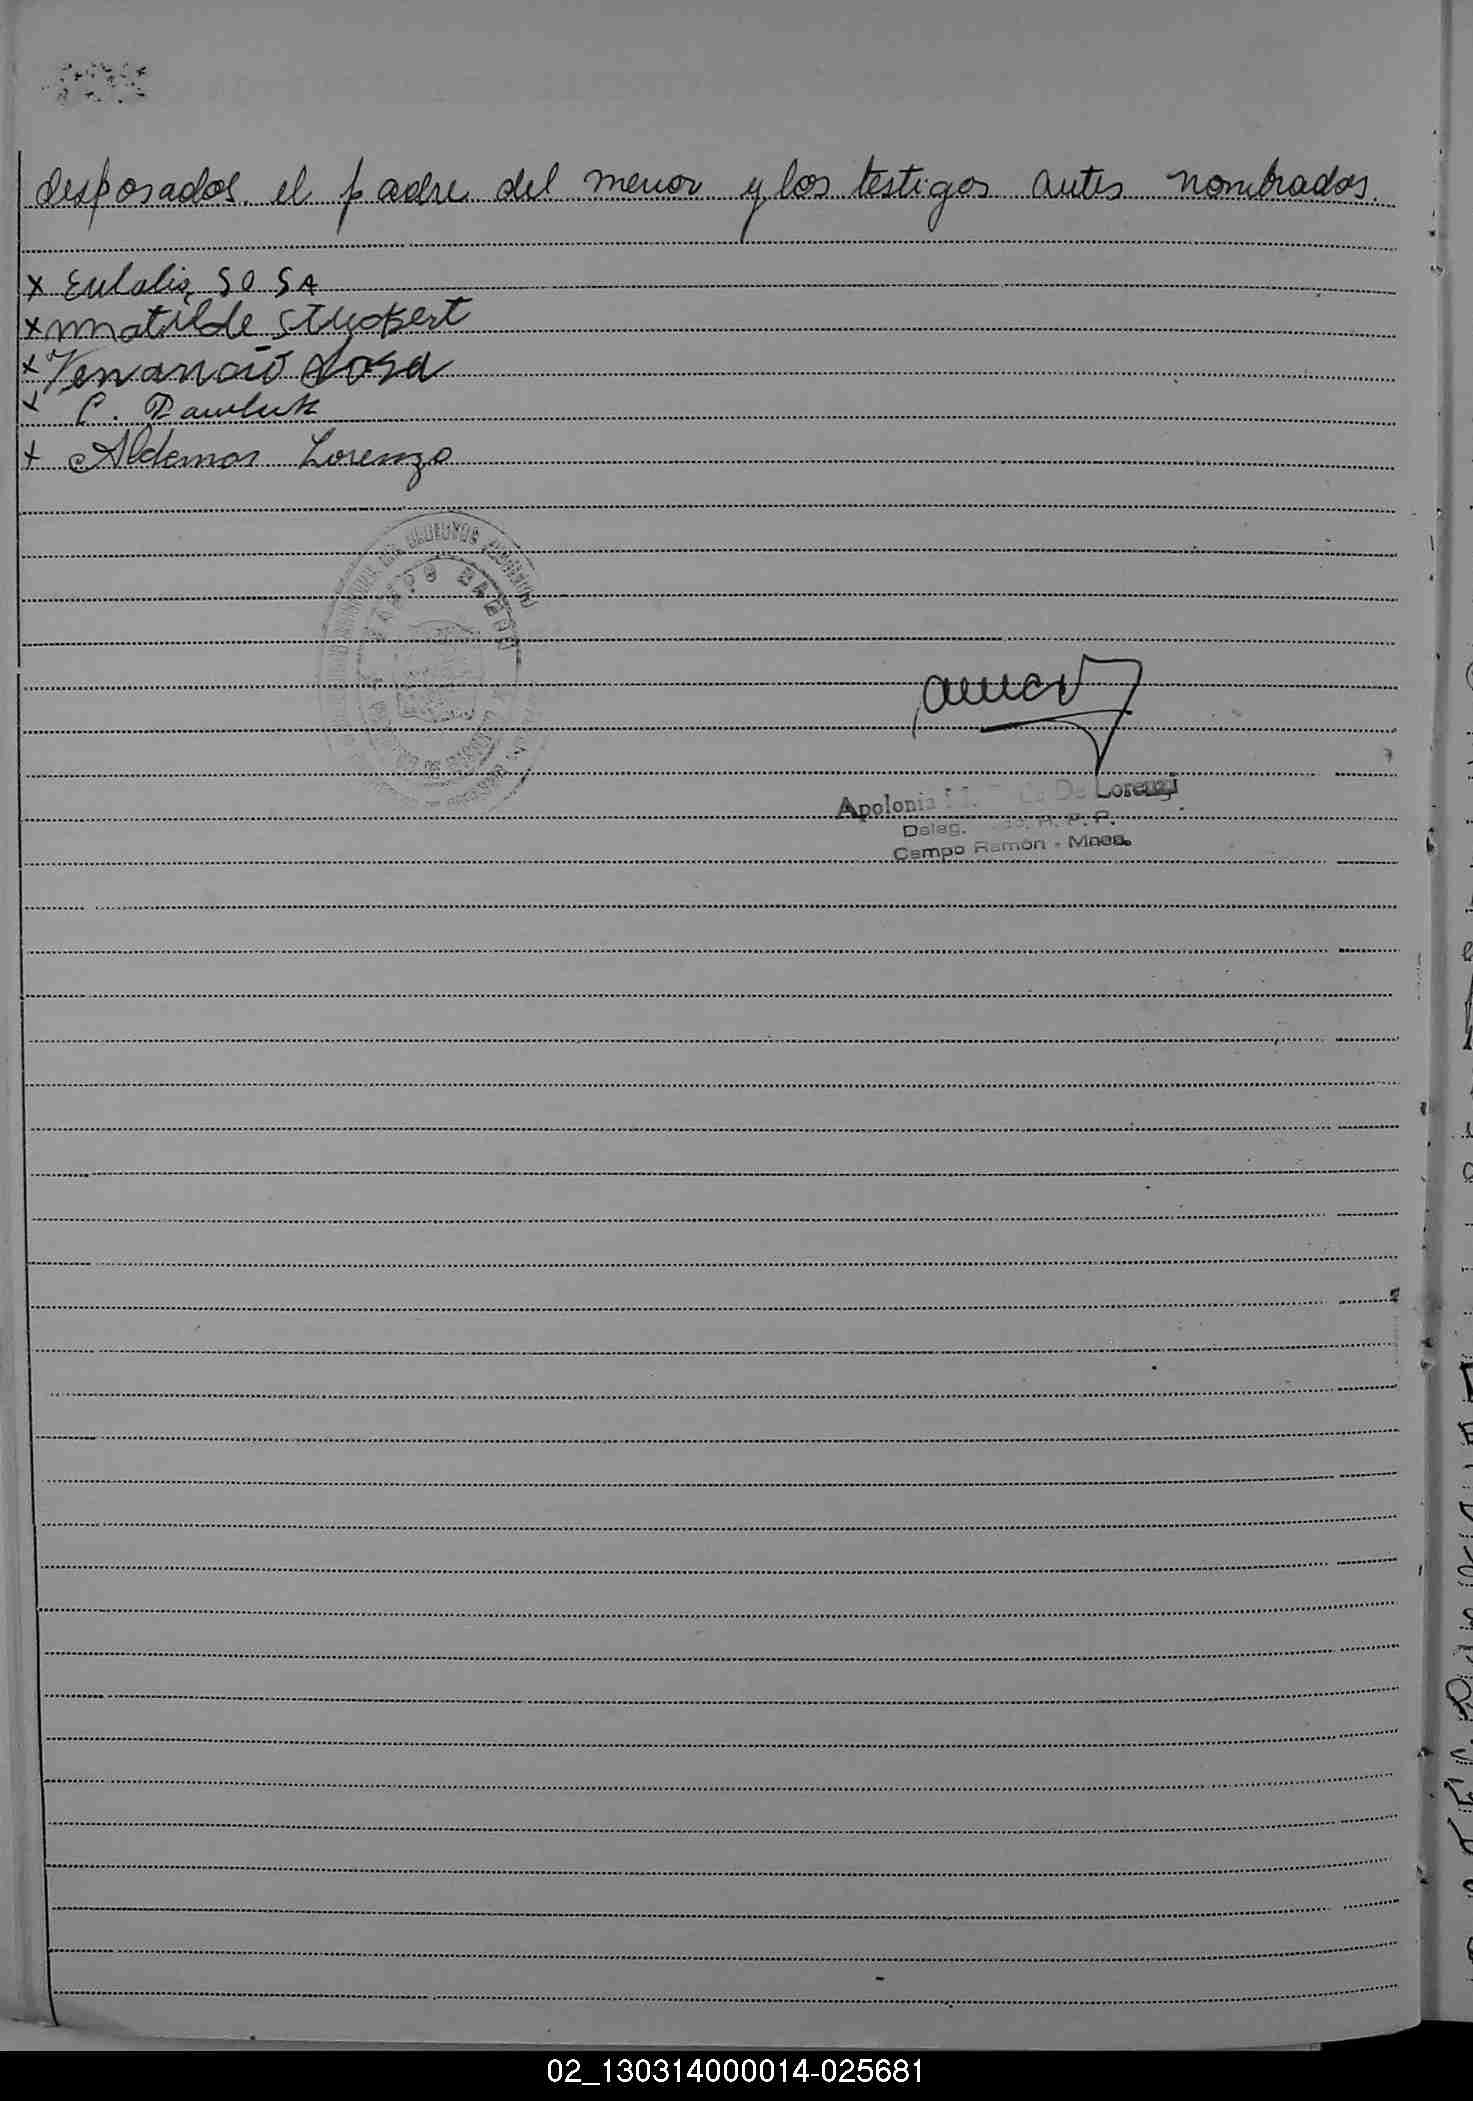 desposados. el padre del menor y los testigos antes nombrados.
x Eulalia SOSA
x Matilde Stuckert
x Venancio Sosa
x C. Pawluk
x Aldemar Lorenzo
CAMPO RAMON
Apolonia M. De Lorenzi
Deleg. R. P. P.
Campo Ramón - Mnes.
02_130314000014-025681